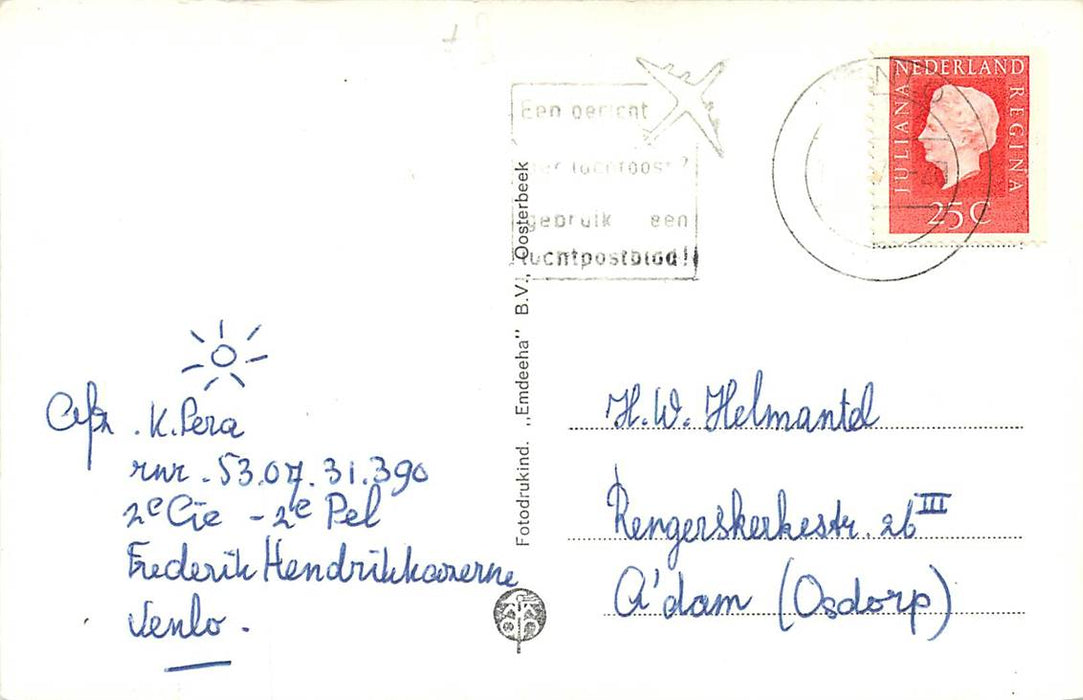 Een bericht
per luchtpost?
gebruik een
luchtpostblad!
NEDERLAND
JULIANA
REGINA
25 C
Fotodrukind. „Emdeeha" B.V., Oosterbeek
Afz. K. Pera
rnr. 53.07.31.390
2e Cie - 2e Pel
Frederik Hendrikkazerne
Venlo.
H.W. Helmantel
Rengerskerkestr. 26 III
A'dam (Osdorp)